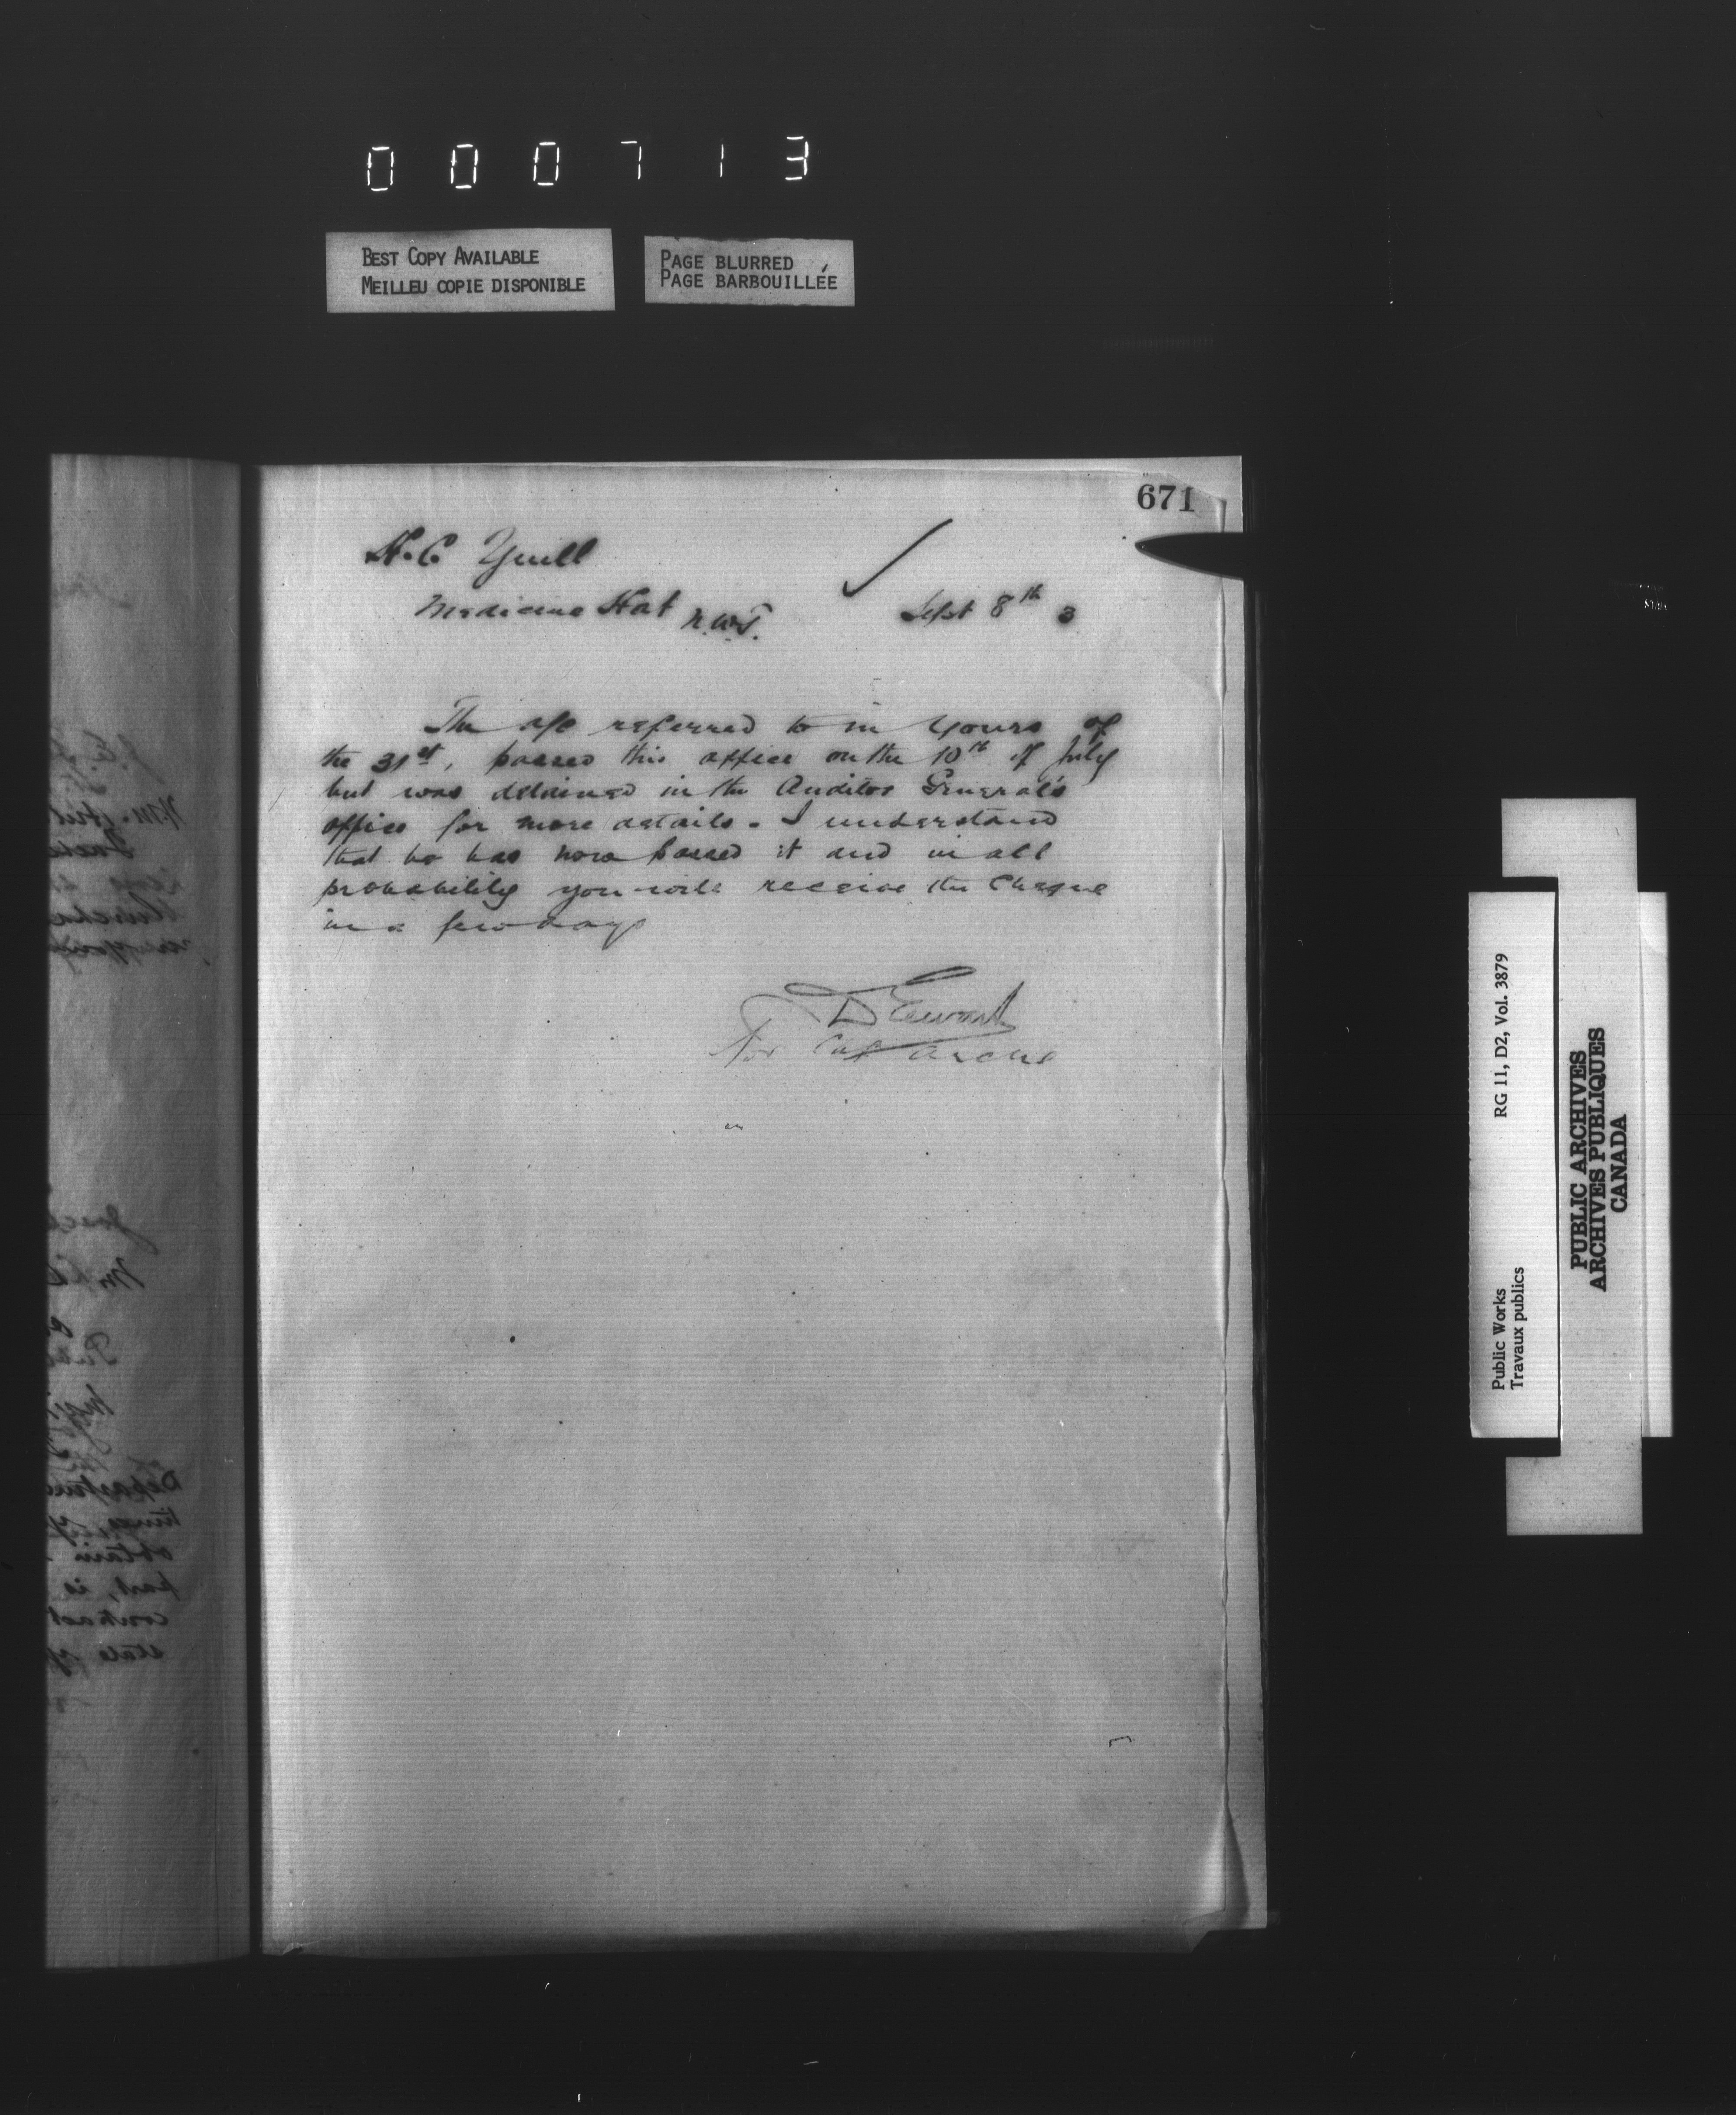 000713
BEST COPY AVAILABLE
MEILLEU COPIE DISPONIBLE
PAGE BLURRED
PAGE BARBOUILLÉE
671
H.C. Yuill
Medicine Hat N.W.T.
Sept 8th 3
The a/c referred to in yours of
the 31st, passed this office on the 10th of July
but was detained in the Auditor General's
office for more details - I understand
that he has now passed it and in all
probability you will receive the cheque
in a few days
D Ewart
For Chf Arche
Public Works
Travaux publics
RG 11, D2, Vol. 3879
PUBLIC ARCHIVES
ARCHIVES PUBLIQUES
CANADA